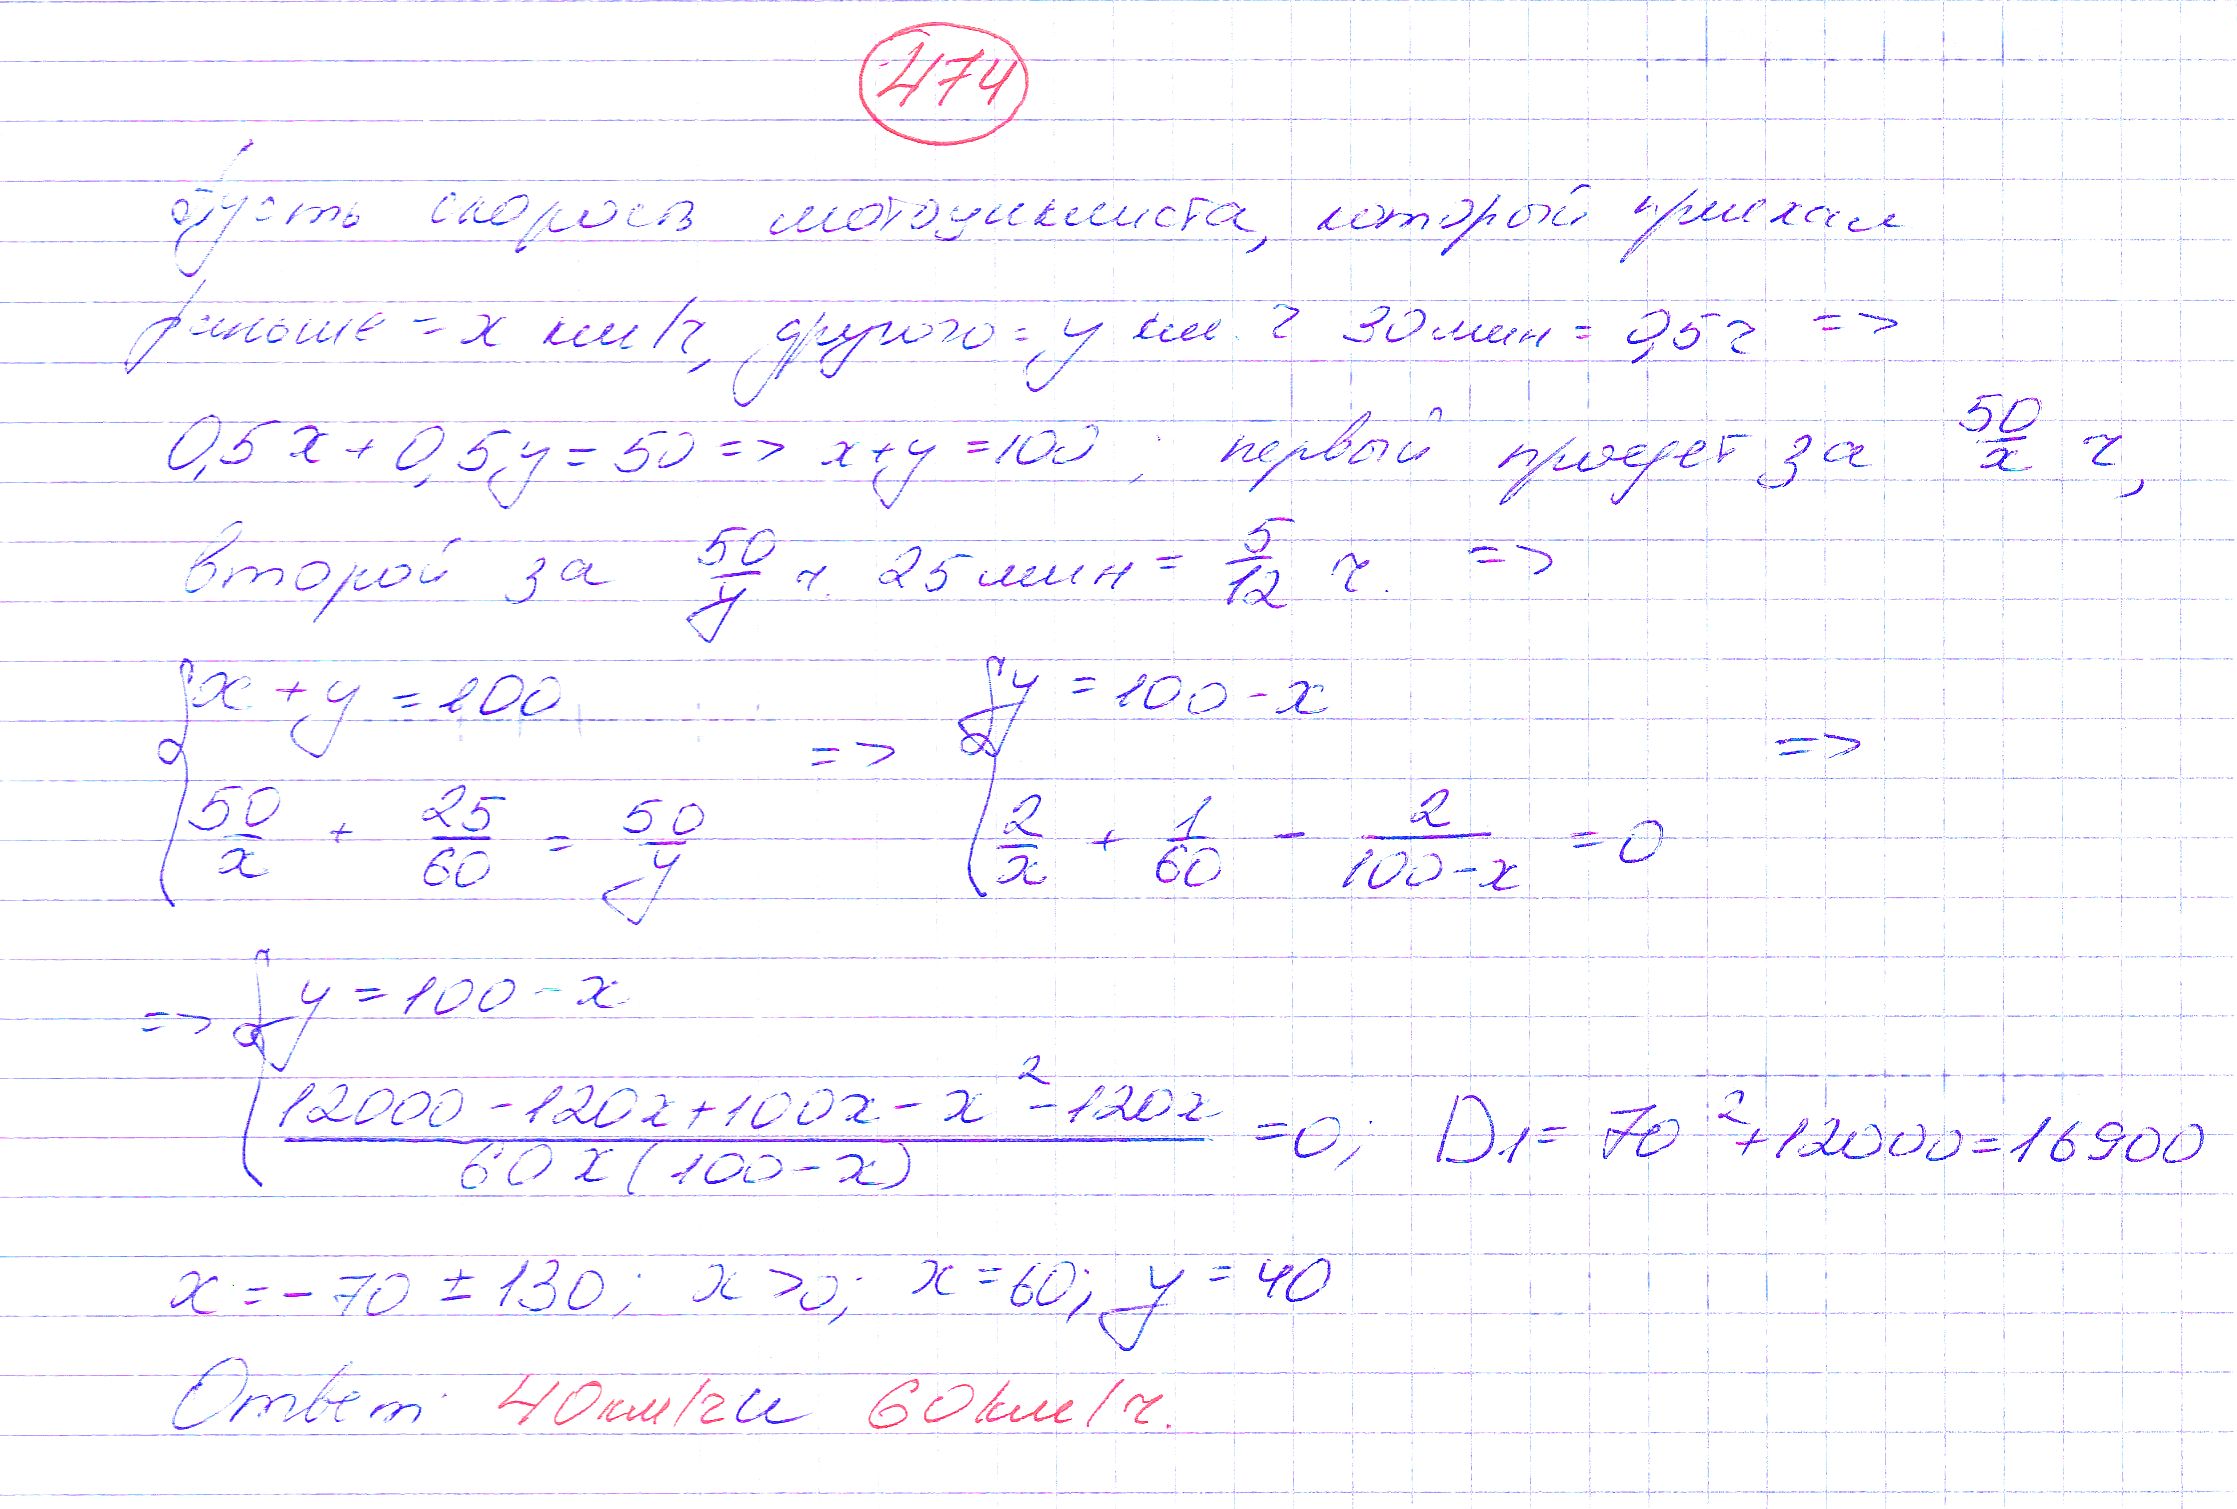 474
Пусть скорость мотоциклиста, который приехал
раньше = x км/ч, другого = y км. ч 30 мин = 0,5 ч =>
0,5x + 0,5y = 50 => x+y = 100; первый проедет за 50/x ч,
второй за 50/y ч. 25 мин = 5/12 ч. =>
{ x + y = 100 => { y = 100 - x =>
50/x + 25/60 = 50/y 2/x + 1/60 - 2/(100-x) = 0
=> { y = 100 - x
(12000 - 120x + 100x - x² - 120x)/(60x(100-x)) = 0; D1 = 70² + 12000 = 16900
x = -70 ± 130; x > 0; x = 60; y = 40
Ответ: 40 км/ч и 60 км/ч.